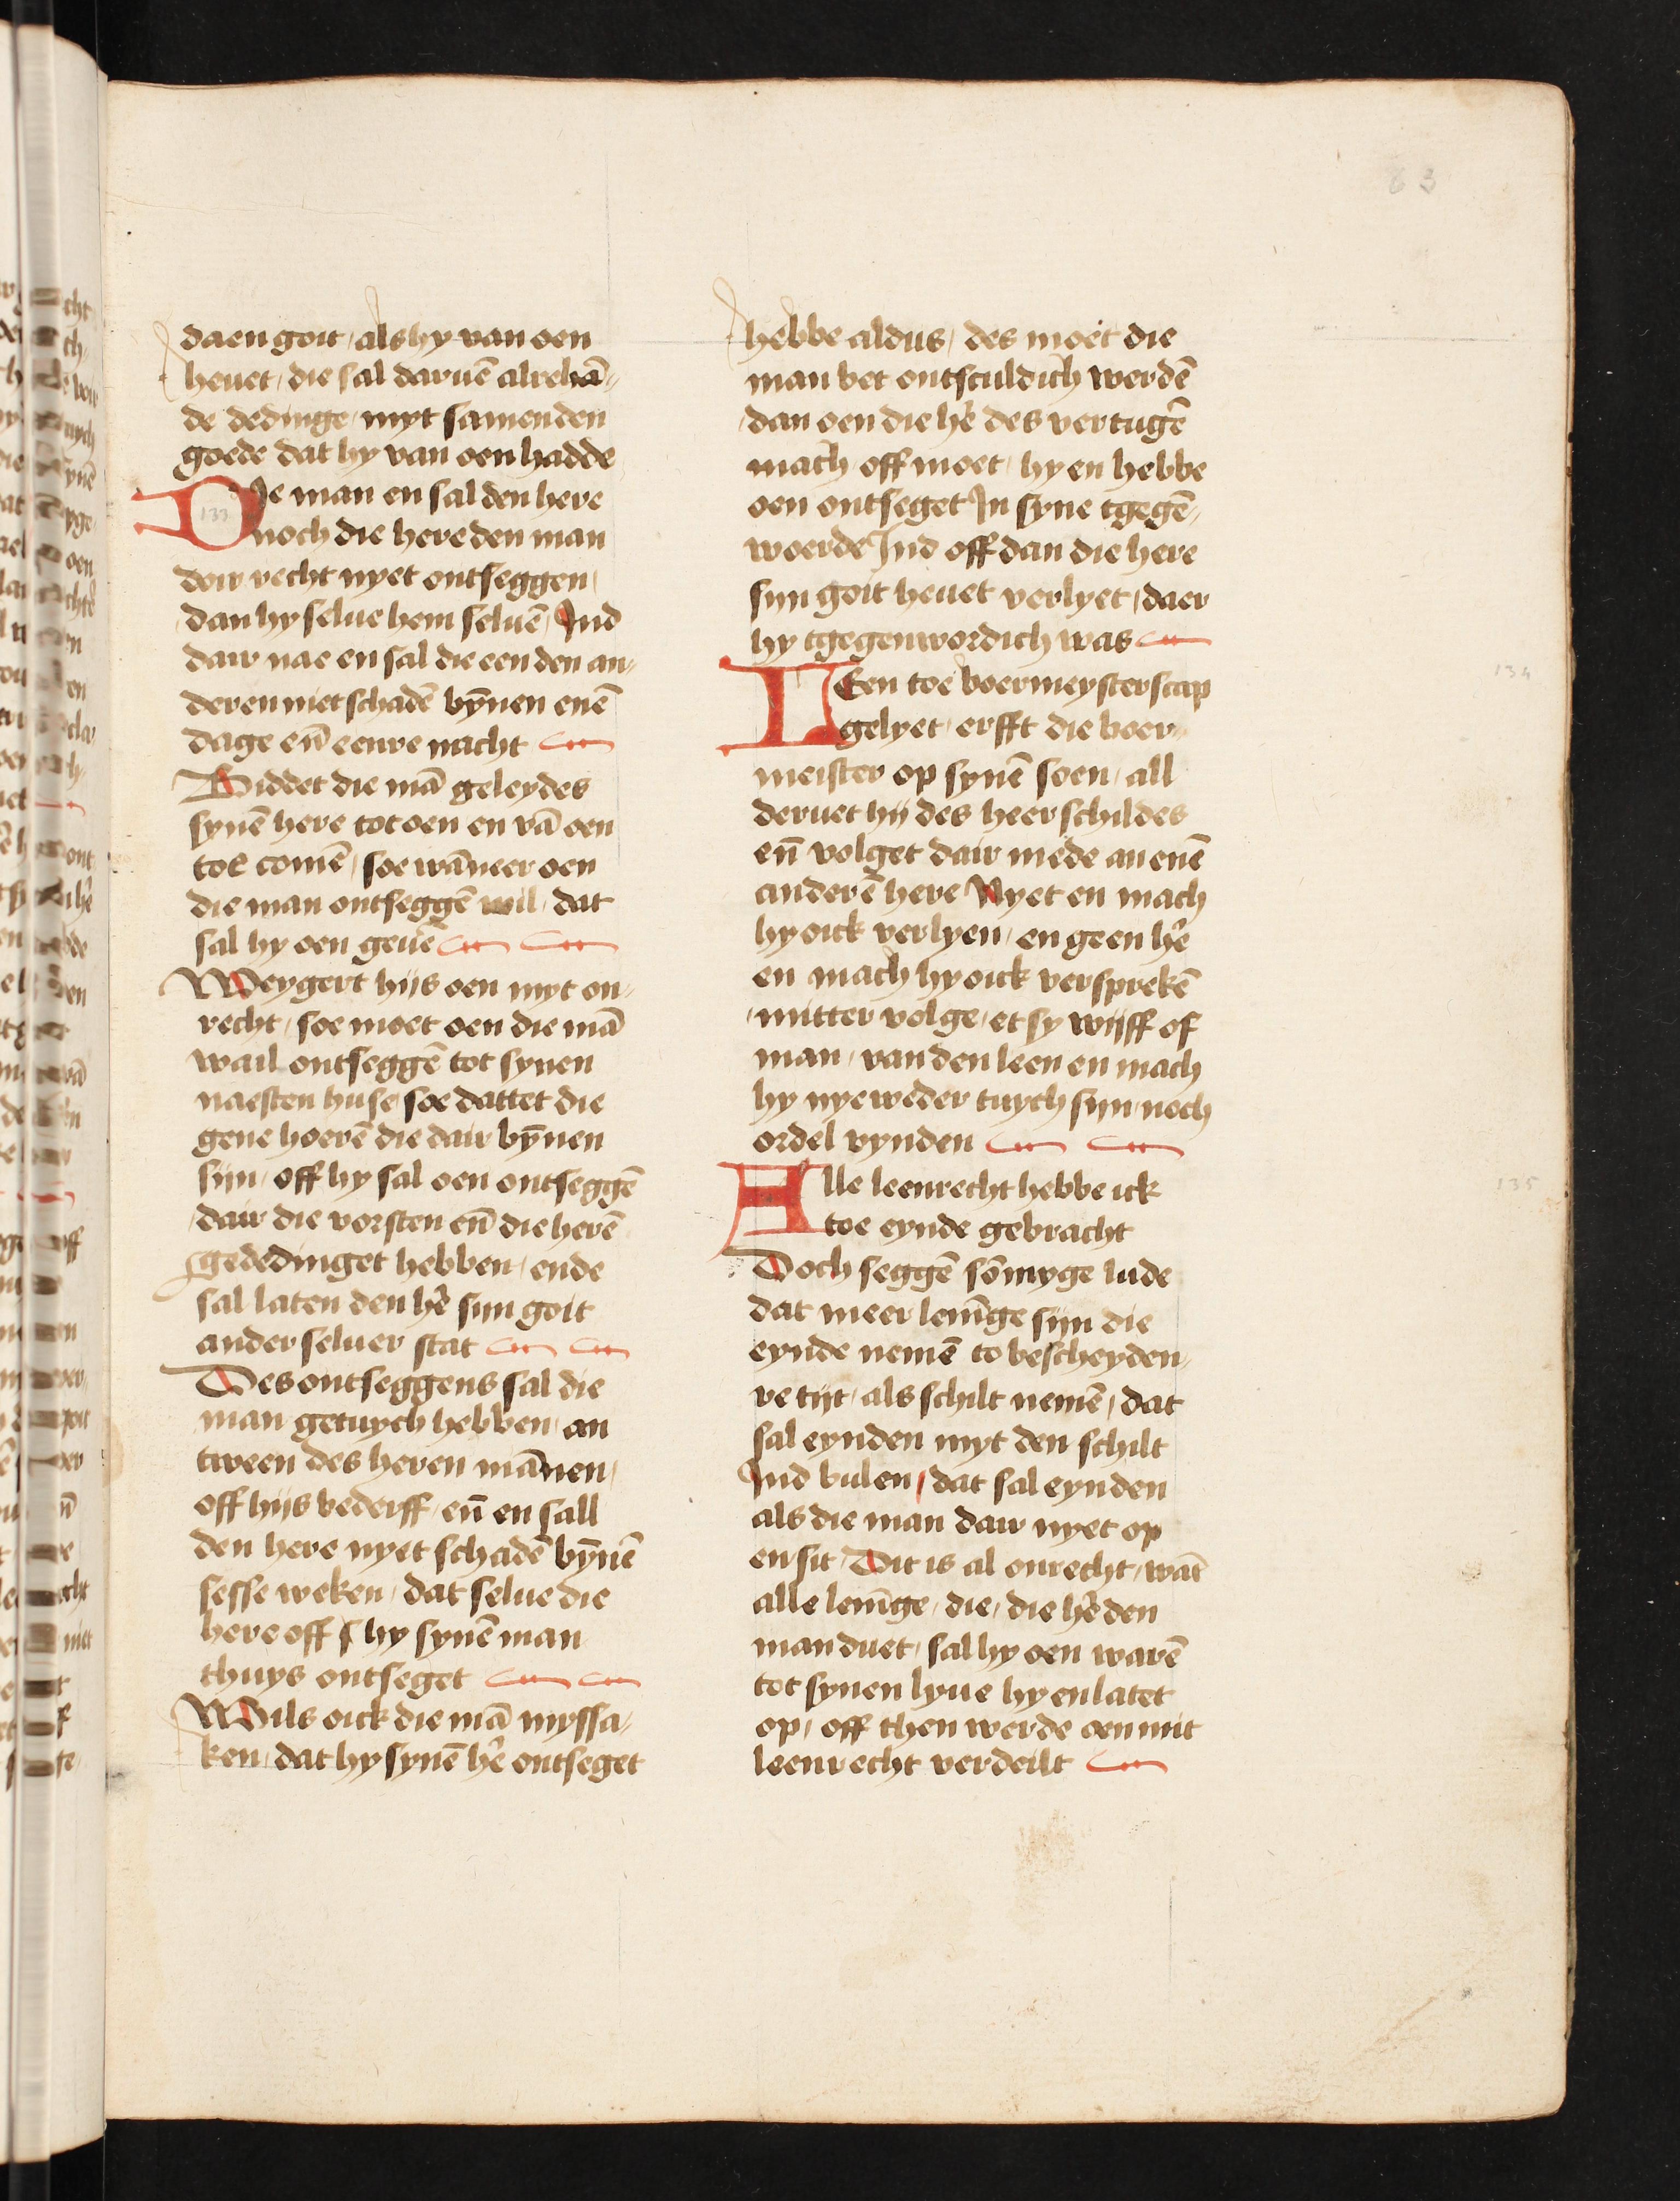 63
daen goit / als hy van oen
heuet / die sal daruē alrehā⸗
de dedinge / myt samenden
goede dat hy van oen hadde
Die man en sal den here
133
noch die here den man
doir recht nyet ontseggen /
dan hy selue hem seluē / Ind
dair nae en sal die een den an⸗
deren niet schadē bȳnen enē
dage eñ eenre nacht
Biddet die mā geleydes
synē here tot oen en vā oen
toe comē / soe wāneer oen
die man ontseggē wil / dat
sal hy oen geuē
Weygert hijs oen myt on⸗
recht / soe moet oen die mā
wail ontseggē tot synen
naesten huse soe dattet die
gene hoerē die dair bȳnen
sijn / off hy sal oen ontseggē
dair die vorsten eñ die herē
gededinget hebben / ende
sal laten den hē sijn goit
ander seluer stat
Des ontseggens sal die
man getuych hebben / an
tween des heren mānen /
off hijs bederff / eñ en sall
den here nyet schadē bȳnē
sesse weken / dat selue die
here off hy synē man
thuys ontseget
Wils oick die mā myssa⸗
ken / dat hy synē hē ontseget
hebbe aldus / des moet die
man bet ontsculdich werdē
dan oen die hē des vertugē
mach / off moet / hy en hebbe
oen ontseget In syne tgegē⸗
woerde Ind off dan die here
sijn goit heuet verlyet / daer
hy tgegenwordich was
134
LEen toe boermeysterscap
gelyet / erfft die boer⸗
meister op synē soen / all
deruet hij des heerschildes
eñ volget dair mede an enē
anderē here Nyet en mach
hy oick verlyen / en geen hē
en mach hy oick versprekē
mitter volge / et sy wijff of
man / van den leen en mach
hy nyeweder tuych sijn / noch
ordel vynden
135
Alle leenrecht hebbe ick
toe eynde gebracht
Doch seggē sōmyge lude
dat meer lenīge sijn die
eynde nemē to bescheyden⸗
re tijt / als schilt nemē / dat
sal eynden myt den schilt
Ind bulen / dat sal eynden
als die man dair nyet op
en sit / Dit is al onrecht / wāt
alle lenīge / die / die hē den
man duet / sal hy oen warē
tot synen lyue hy en latet
op / off then werde oen mit
leenrecht verdeilt